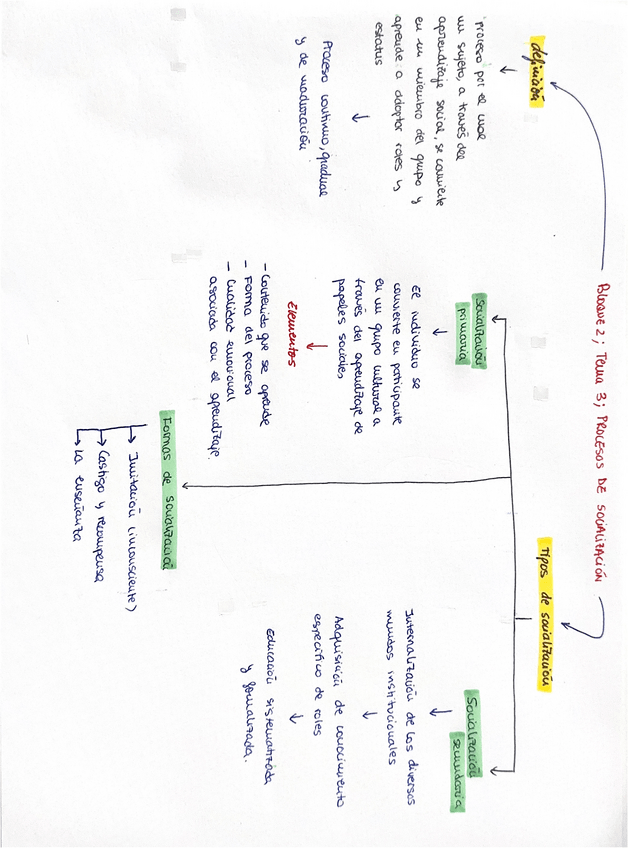 Bloque 2; Tema 3; PROCESOS DE SOCIALIZACIÓN
definición
Proceso por el cual
un sujeto, a través del
aprendizaje social, se convierte
en un miembro del grupo y
aprende a adoptar roles y
estatus
Proceso continuo, gradual
y de maduración
Tipos de socialización
Socialización
primaria
El individuo se
convierte en participante
en un grupo cultural a
través del aprendizaje de
papeles sociales
Elementos
- Contenido que se aprende
- Forma del proceso
- Cualidad emocional
asociada con el aprendizaje.
Formas de socialización
Imitación (inconsciente)
Castigo y recompensa
La enseñanza
Socialización
secundaria
Internalización de los diversos
mundos institucionales
Adquisición de conocimiento
específico de roles
Educación sistematizada
y formalizada.